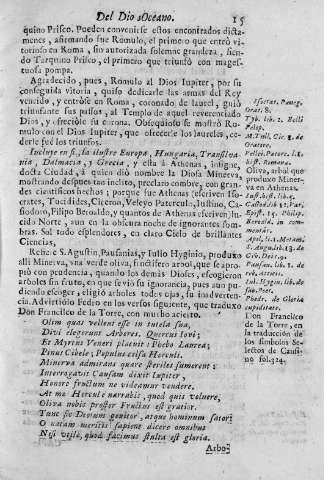 Del Dio Oceano. 15
quino Prisco. Pueden convenirse estos encontrados dicta-
menes, afirmando fue Romulo, el primero que entró vi-
torioso en Roma, sin autorizada solemne grandeza, sien-
do Tarquino Prisco, el primero que triunfó con mages-
tuosa pompa.
Agradecido, pues, Romulo al Dios Iupiter, por su
conseguida vitoria, quiso dedicarle las armas del Rey
vencido, y entróse en Roma, coronado de laurel, guió
triunfante sus passos, al Templo de aquel reverenciado
Dios, y ofrecióle su corona. Obsequioso se mostró Ro-
mulo con el Dios Iupiter, que ofrecerle los laureles, ce-
derle fue los triunfos.
Incluye en si, la ilustre Europa, Hungaria, Transilva-
nia, Dalmacia, y Grecia, y esta à Athenas, insigne,
docta Ciudad, à quien dió nombre la Diosa Minerva,
mostrando despues tan inclito, preclaro nombre, con gran-
des cientificos hechos; porque fue Athenas (escriven Iso-
crates, Tucidides, Ciceron, Veleyo Paterculo, Iustino, Ca-
siodoro, Filipo Beroaldo, y quantos de Athenas escriven) lu-
cido Norte, aun en la obscura noche de ignorantes som-
bras. Sol todo esplendores, en claro Cielo de brillantes
Ciencias.
Refiere S. Agustin, Pausanias, y Iulio Hyginio, produxo
alli Minerva, una verde oliva, fructifero arbol, que se apro-
pió con prudencia, quando los demàs Dioses, escogieron
arboles sin fruto, en que se vió su ignorancia, pues aun pu-
diendo escoger, eligió arboles todos vajos, su inadverten-
cia. Advirtiólo Fedro en los versos siguientes, que traduxo
Don Francisco de la Torre, con mucho acierto.
Olim quas vellent esse in tutela sua,
Divi elegerunt Arbores. Quercus Iovi;
Et Myrtus Veneri placuit: Phoebo Laurea;
Pinus Cibele; Populus celsa Herculi.
Minerva admirans quare steriles sumerent:
Interrogavit Causam dixit Iupiter,
Honore fructum ne videamur vendere.
At me Hercule narrabit, quod quis voluere,
Oliva nobis propter Fructus est gratior.
Tunc sic Deorum genitor, atque hominum sator:
O natam meritis sapient dicere omnibus
Nisi utile, quod facimus stulta est gloria.
Arbo-
Isocrat. Paneg.
Orat. 8.
Tyb. lib. 2. Belli
Pelop.
M. Tull. Cic. 2. de
Oratore.
Vellei. Paterc. l. 1.
hist. Romana.
Oliva, arbol
que produxo
Minerva en
en Athenas.
Iust. hist. lib. 2.
Casiod. lib. 12. Pari,
Epist. 15. Philip.
Beroald. in com-
mentar.
Apul. l. 1. Metam.
S. Augus. lib. 18. de
Civ. Dei c. 9.
Pausan. lib. 1. de
reb. Atticis.
Iul. Hygin. lib. de
Phedr. de Gloria
cupiditate.
Don Francisco
de la Torre, en
la traducion de
los simbolos Se-
lectos de Causi-
no fol. 324.